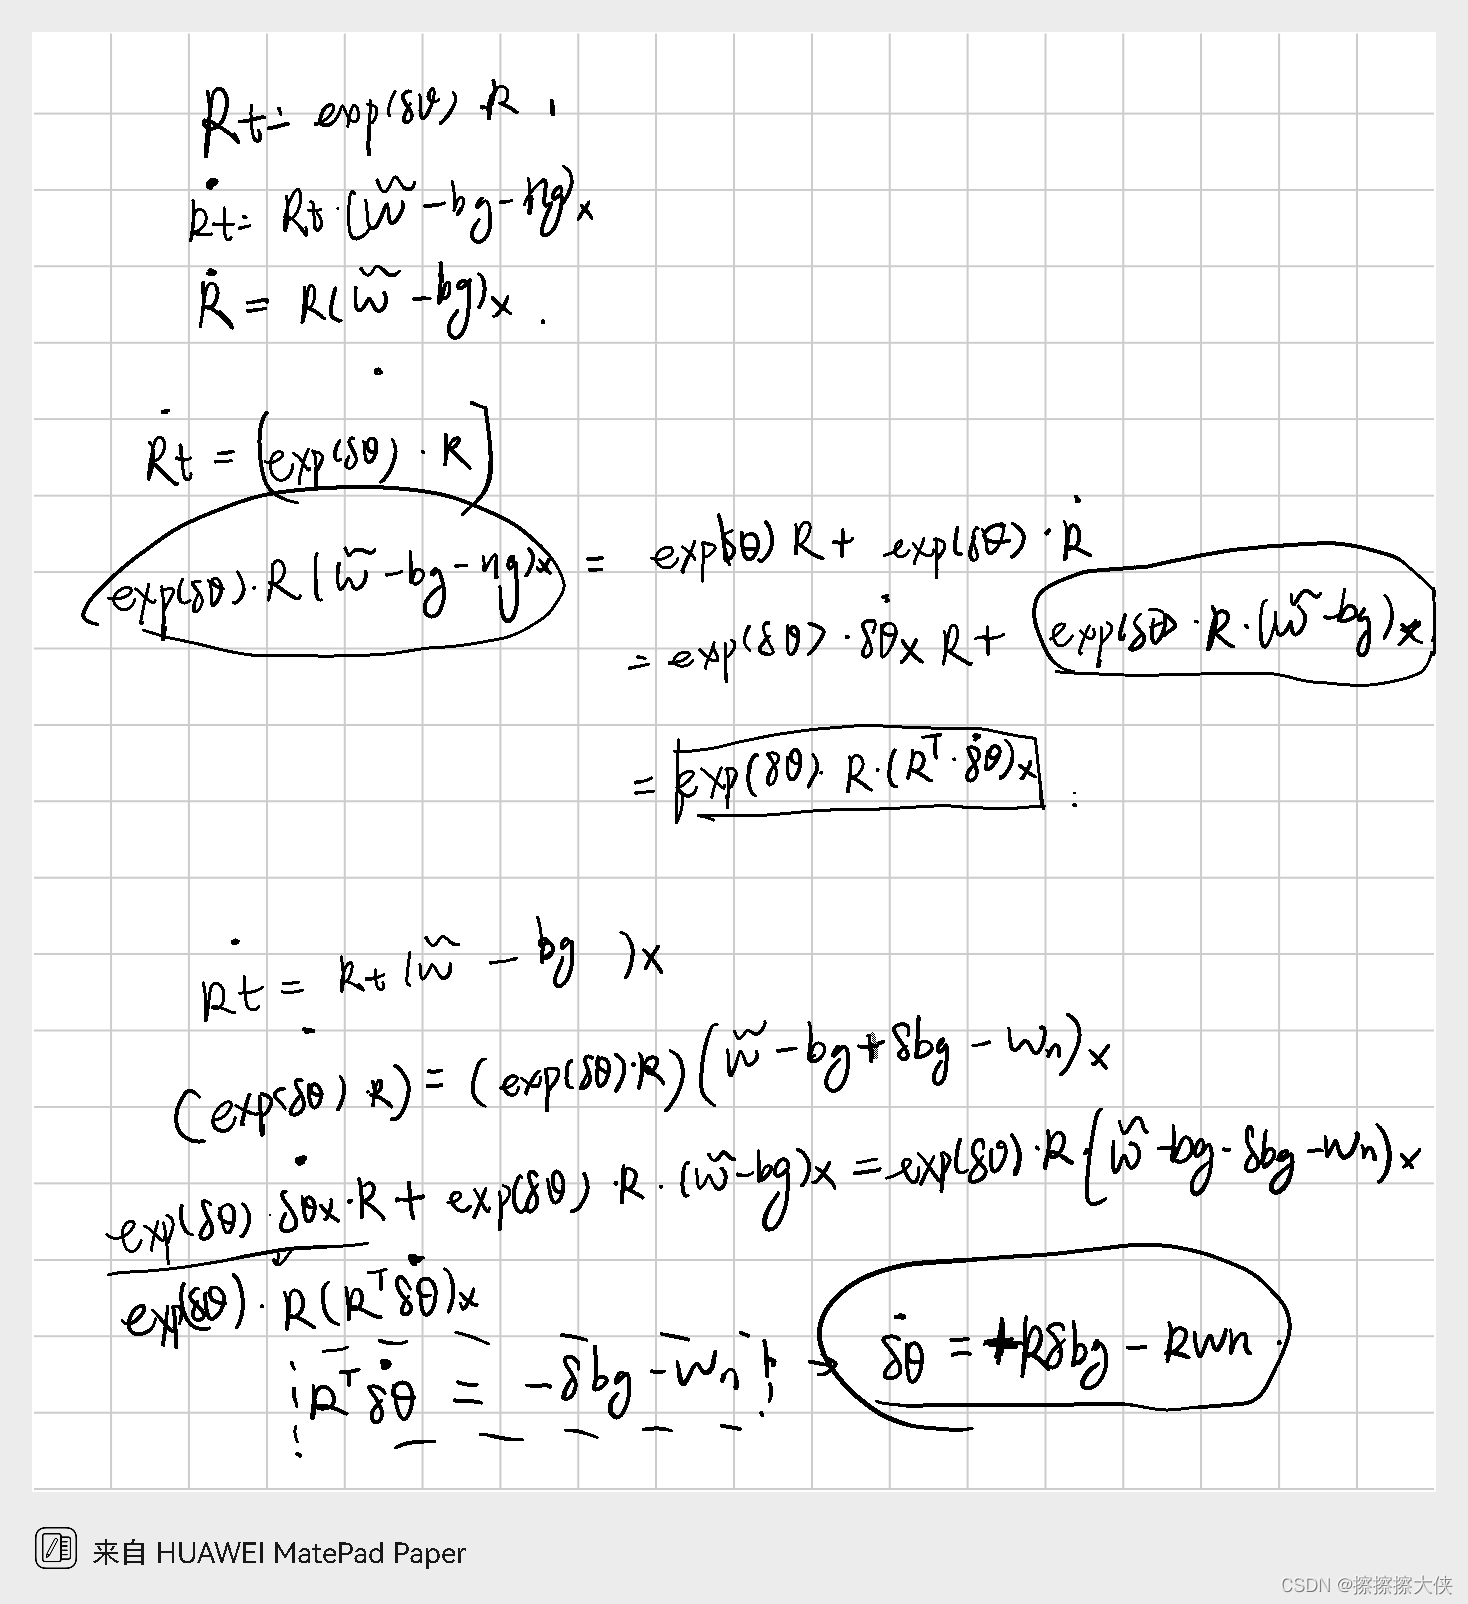 Rt = exp(δθ) · R .
Ṙt = Rt · (w̃ - bg - ng)x
Ṙ = R(w̃ - bg)x .
Ṙt = [exp(δθ) · R]
exp(δθ) · R (w̃ - bg - ng)x = exp(δθ) R + exp(δθ) · Ṙ
= exp(δθ) · δθ̇x R + exp(δθ) · R · (w̃ - bg)x
= exp(δθ) · R · (Rᵀ · δθ̇)x
Ṙt = Rt (w̃ - bg )x
(exp(δθ) R) = (exp(δθ) · R) (w̃ - bg + δbg - wn)x
exp(δθ) · δθ̇x · R + exp(δθ) · R · (w̃ - bg)x = exp(δθ) · R · (w̃ - bg - δbg - wn)x
exp(δθ) · R (Rᵀ δθ̇)x
Rᵀ δθ̇ = -δbg - wn → δθ̇ = +Rδbg - Rwn
来自 HUAWEI MatePad Paper
CSDN @擦擦擦大侠